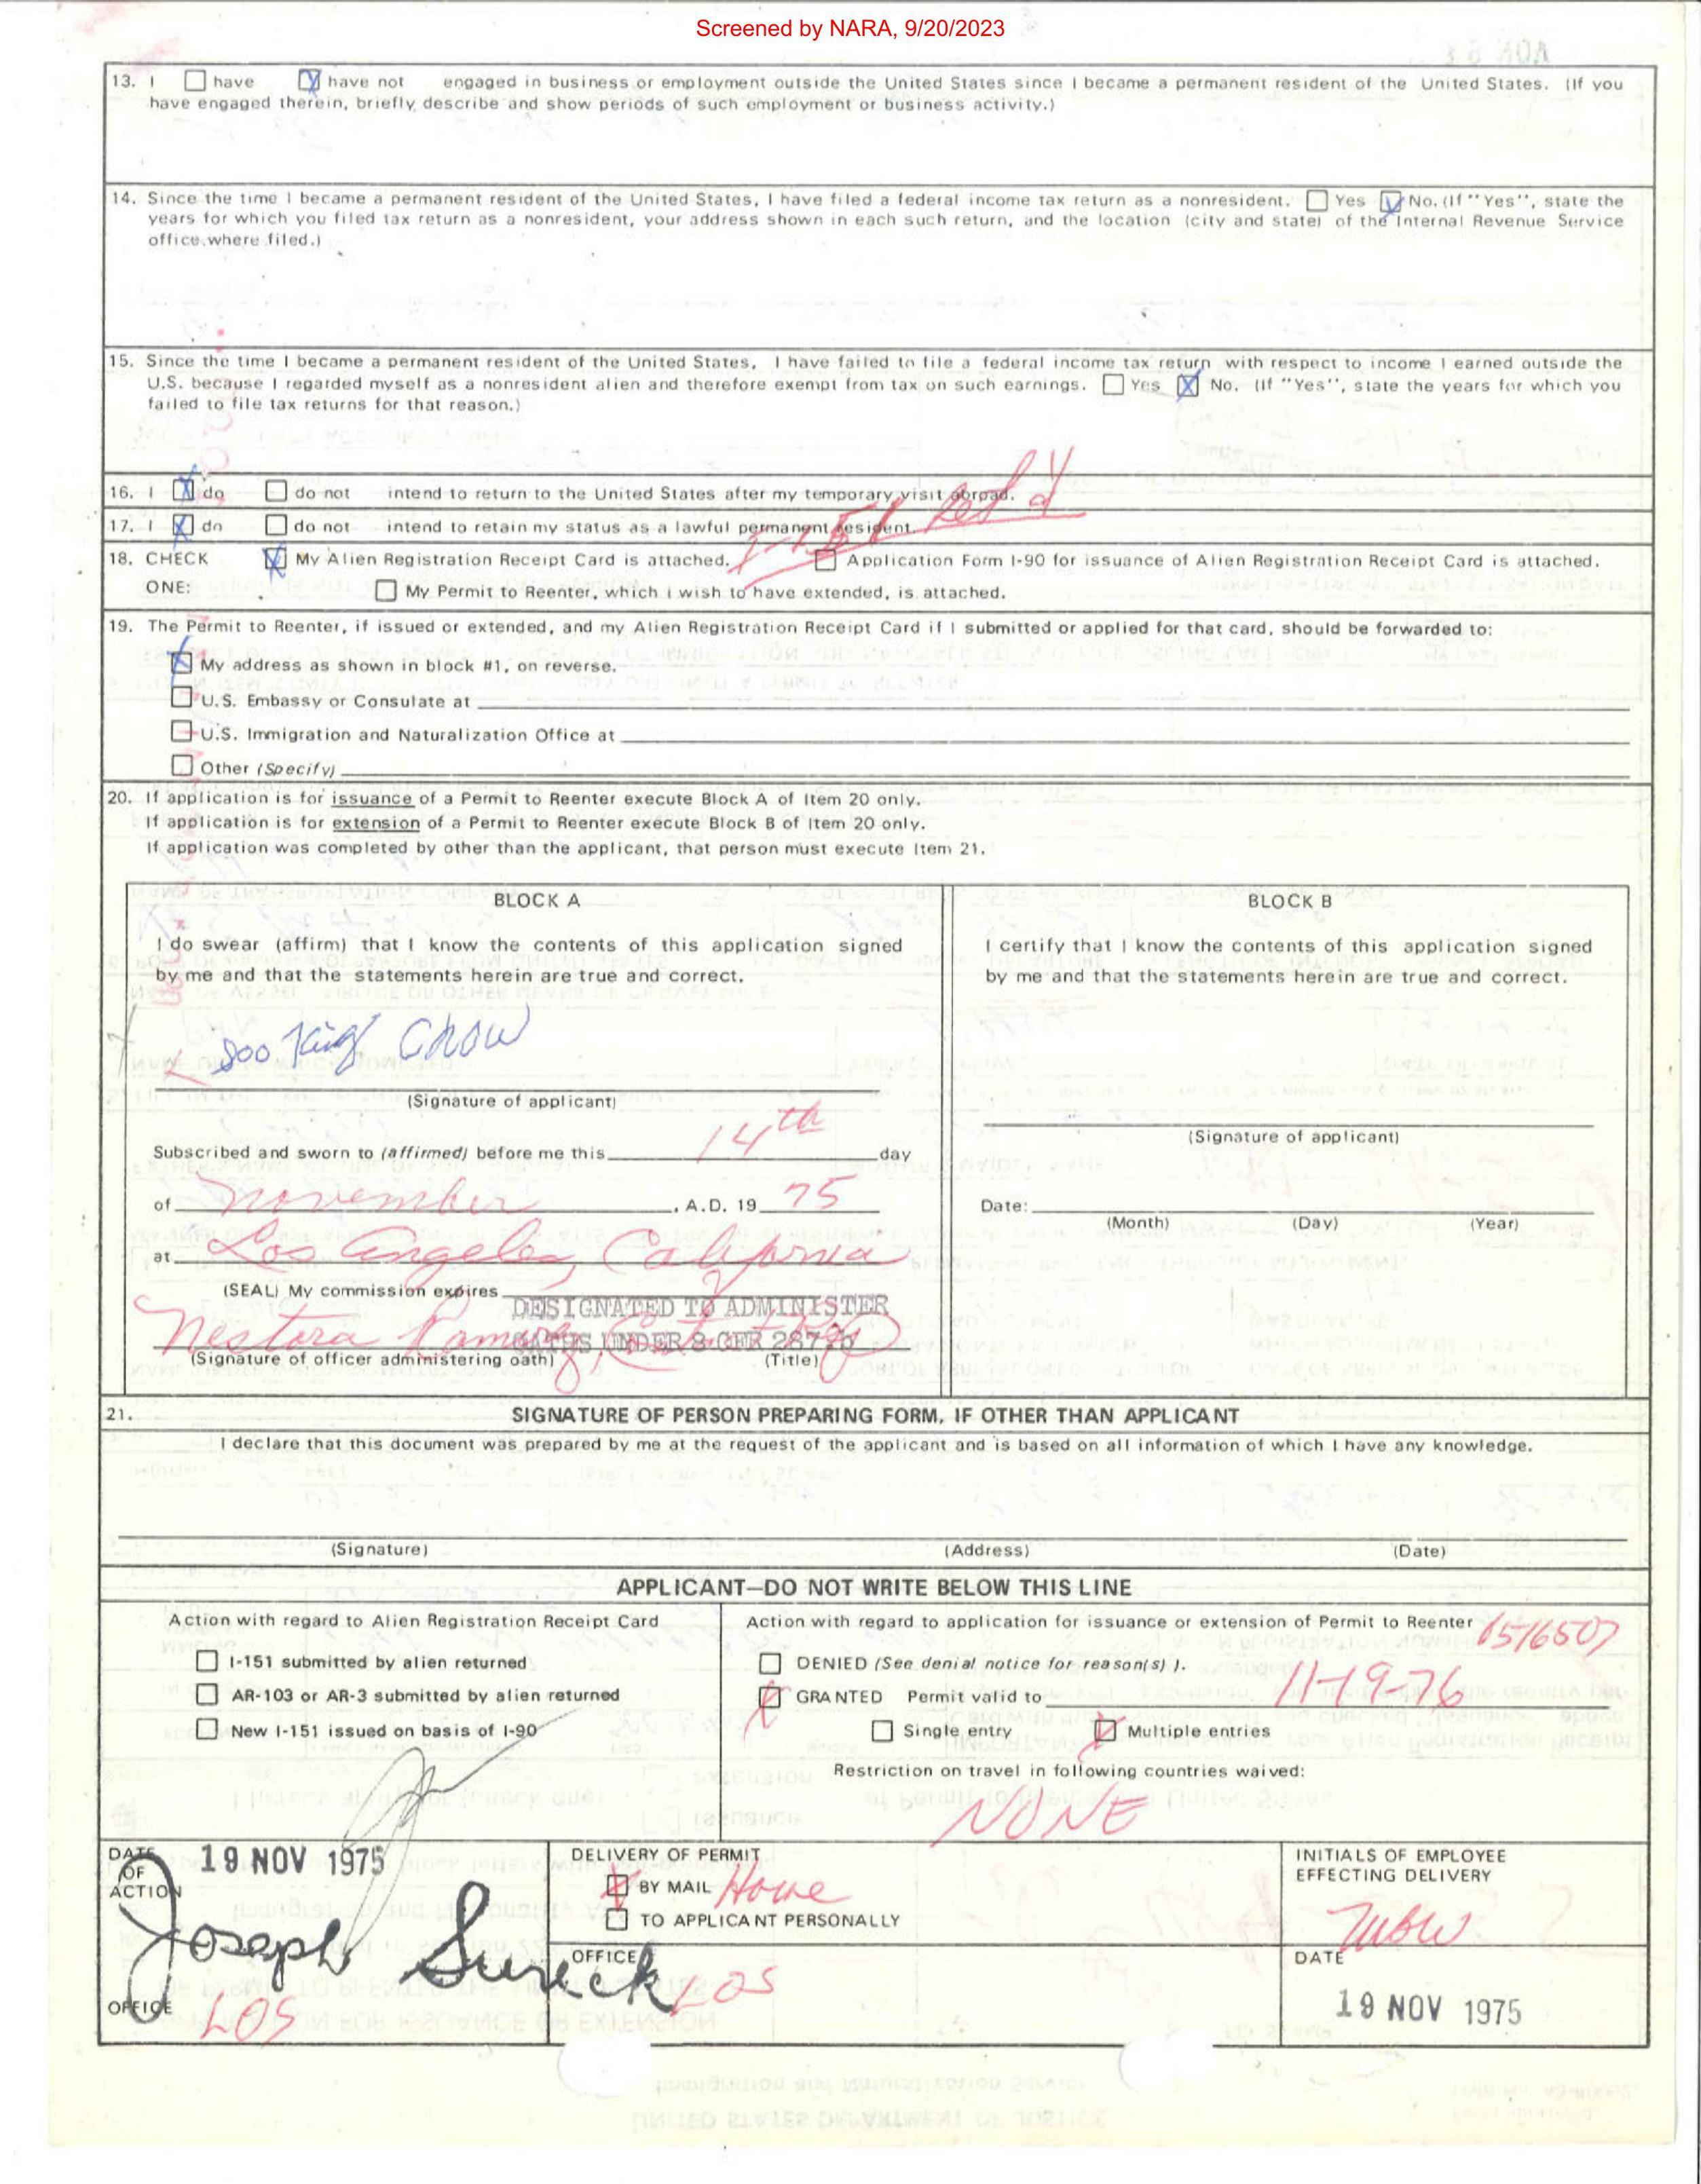 Screened by NARA, 9/20/2023
13. I have have not engaged in business or employment outside the United States since I became a permanent resident of the United States. (If you
have engaged therein, briefly describe and show periods of such employment or business activity.)
14. Since the time I became a permanent resident of the United States, I have filed a federal income tax return as a nonresident. Yes No. (If "Yes", state the
years for which you filed tax return as a nonresident, your address shown in each such return, and the location (city and state) of the Internal Revenue Service
office where filed.)
15. Since the time I became a permanent resident of the United States, I have failed to file a federal income tax return with respect to income I earned outside the
U.S. because I regarded myself as a nonresident alien and therefore exempt from tax on such earnings. Yes X No. (If "Yes", state the years for which you
failed to file tax returns for that reason.)
16. I X do do not intend to return to the United States after my temporary visit abroad.
17. I X do do not intend to retain my status as a lawful permanent resident
I-151 Ret'd
18. CHECK My Alien Registration Receipt Card is attached. Application Form I-90 for issuance of Alien Registration Receipt Card is attached.
ONE: My Permit to Reenter, which I wish to have extended, is attached.
19. The Permit to Reenter, if issued or extended, and my Alien Registration Receipt Card if I submitted or applied for that card, should be forwarded to:
X My address as shown in block #1, on reverse.
U.S. Embassy or Consulate at
U.S. Immigration and Naturalization Office at
Other (Specify)
20. If application is for issuance of a Permit to Reenter execute Block A of Item 20 only.
If application is for extension of a Permit to Reenter execute Block B of Item 20 only.
If application was completed by other than the applicant, that person must execute Item 21.
BLOCK A
I do swear (affirm) that I know the contents of this application signed
by me and that the statements herein are true and correct.
Soo King Chow
(Signature of applicant)
Subscribed and sworn to (affirmed) before me this 14th day
of November, A.D. 19 75
at Los Angeles, California
(SEAL) My commission expires
DESIGNATED TO ADMINISTER
OATHS UNDER 8 CFR 287.5
Nestora
(Signature of officer administering oath) (Title)
BLOCK B
I certify that I know the contents of this application signed
by me and that the statements herein are true and correct.
(Signature of applicant)
Date:
(Month) (Day) (Year)
21. SIGNATURE OF PERSON PREPARING FORM, IF OTHER THAN APPLICANT
I declare that this document was prepared by me at the request of the applicant and is based on all information of which I have any knowledge.
(Signature) (Address) (Date)
APPLICANT—DO NOT WRITE BELOW THIS LINE
Action with regard to Alien Registration Receipt Card
I-151 submitted by alien returned
AR-103 or AR-3 submitted by alien returned
New I-151 issued on basis of I-90
Action with regard to application for issuance or extension of Permit to Reenter 1516507
DENIED (See denial notice for reason(s) ).
X GRANTED Permit valid to 11-19-76
Single entry X Multiple entries
Restriction on travel in following countries waived:
NONE
DATE OF ACTION 19 NOV 1975
Joseph Sureck
OFFICE LOS
DELIVERY OF PERMIT
X BY MAIL Home
TO APPLICANT PERSONALLY
OFFICE LOS
INITIALS OF EMPLOYEE
EFFECTING DELIVERY
DATE
19 NOV 1975